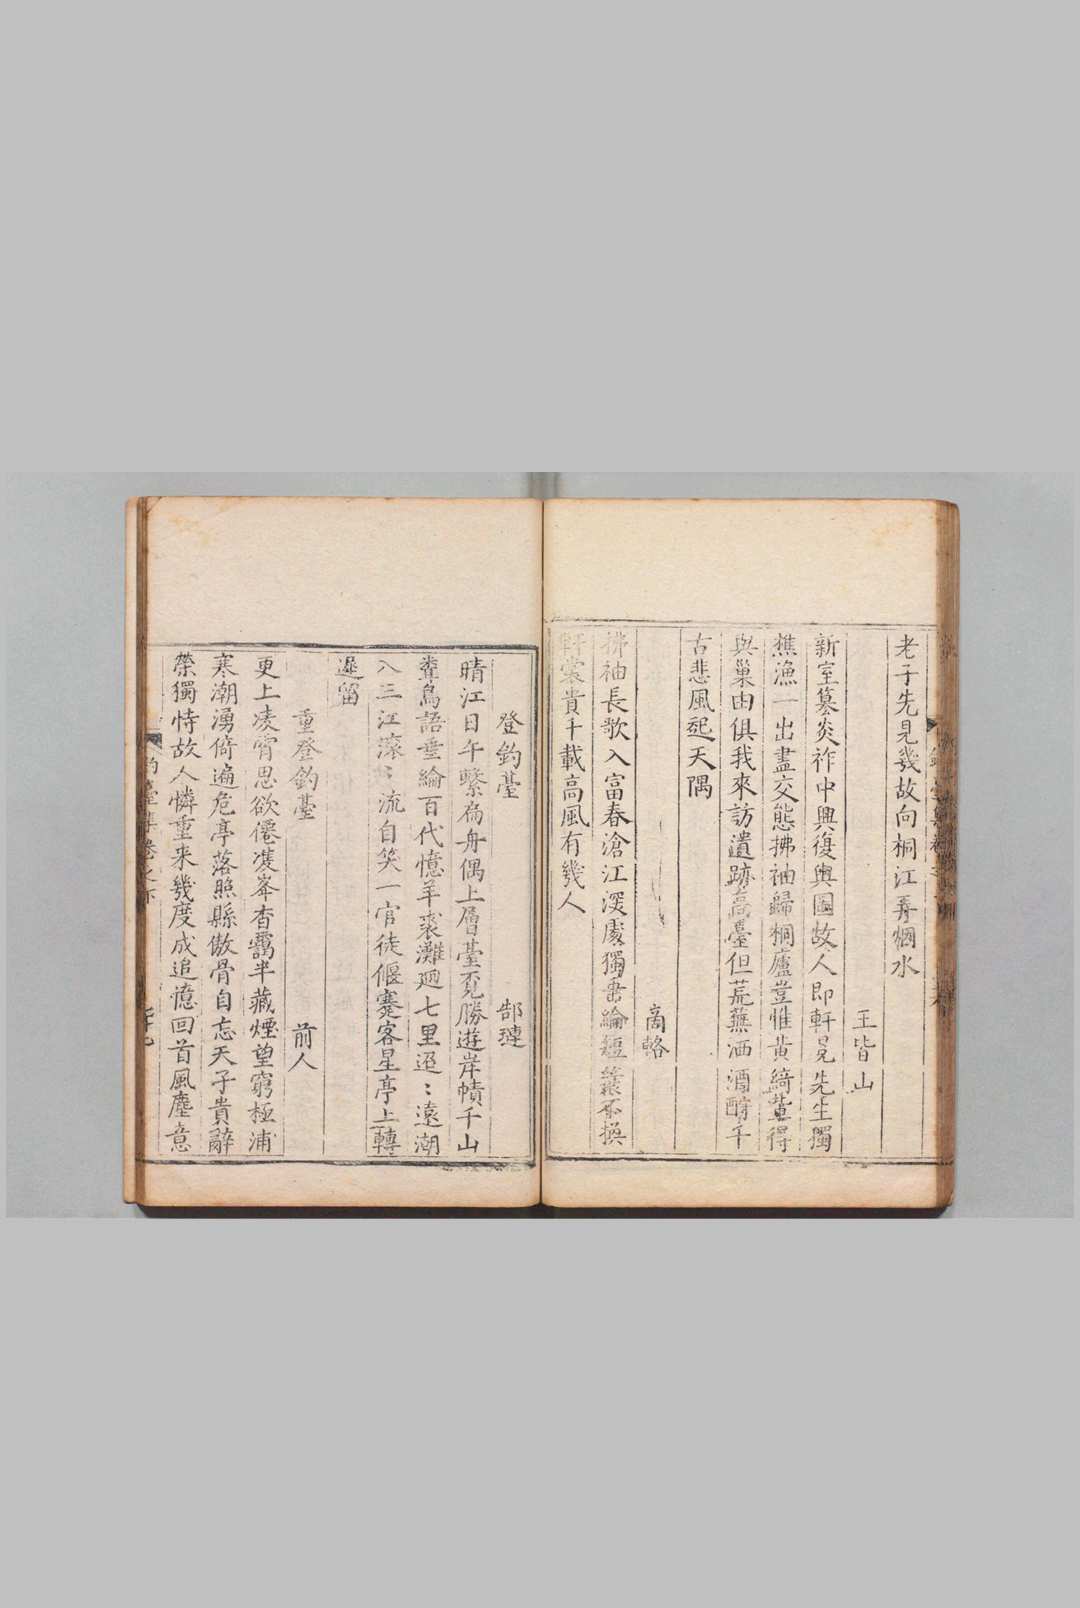 老子先見幾故向桐江弄烟水
王皆山
新室篡炎祚中興復輿圖故人即軒冕先生獨
樵漁一出盡交態拂袖歸桐廬豈惟黄綺輩得
與巢由俱我來訪遺跡高臺但荒蕪洒酒酹千
古悲風起天隅
商輅
拂袖長歌入富春滄江深處獨垂綸短蓑不換
軒裳貴千載高風有幾人
登釣臺
郜璉
晴江日午繫扁舟偶上層臺覓勝遊岸幘千山
聾鳥語垂綸百代憶羊裘灘廻七里迢〻遠潮
入三江滚〻流自笑一官徒偃蹇客星亭上轉
遲留
重登釣臺
前人
更上凌霄思欲僊䨥峯杳靄半藏煙望窮極浦
寒潮湧倚遍危亭落照縣傲骨自忘天子貴辭
榮獨恃故人憐重来幾度成追憶回首風塵意
釣臺集卷之下